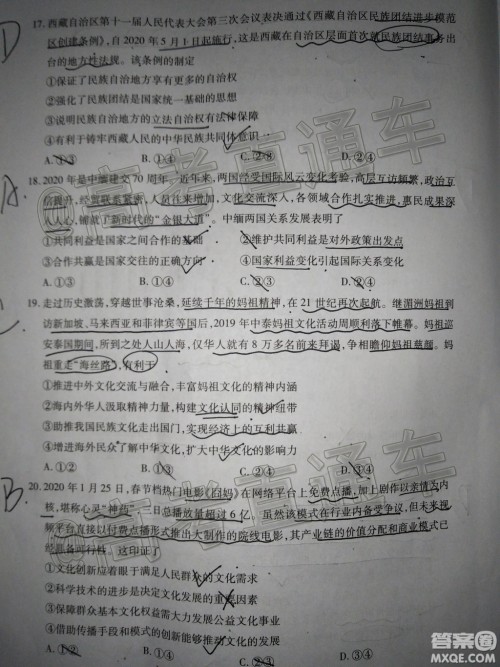 17. 西藏自治区第十一届人民代表大会第三次会议表决通过《西藏自治区民族团结进步模范
区创建条例》,自 2020 年 5 月 1 日起施行,这是西藏在自治区层面首次就民族团结事务出
台的地方性法规。该条例的制定
①保证了民族自治地方享有更多的自治权
②强化了民族团结是国家统一基础的思想
③说明民族自治地方的立法自治权有法律保障
④有利于铸牢西藏人民的中华民族共同体意识
A. ①③ B. ①④ C. ②③ D. ②④
18. 2020 年是中缅建交 70 周年。近年来,两国经受国际风云变化考验,高层互访频繁,政治互
信提升,经贸联系紧密,人员往来增加,文化交流深入,各领域合作扎实推进,惠民成果深
入人心,铆就了新时代的“金银大道”。中缅两国关系发展表明了
①共同利益是国家之间合作的基础 ②维护共同利益是对外政策出发点
③合作共赢是国家交往的正确方向 ④国家利益变化引起国际关系变化
A. ①③ B. ①④ C. ②③ D. ②④
19. 走过历史激荡,穿越世事沧桑,延续千年的妈祖精神,在 21 世纪再次起航。继湄洲妈祖到
访新加坡、马来西亚和菲律宾等国后,2019 年中泰妈祖文化活动周顺利落下帷幕。妈祖巡
安泰国期间,所到之处人山人海,仅华人就有 8 万多名前来拜谒,争相瞻仰妈祖慈颜。妈
祖重走“海丝路”,有利于
①推进中外文化交流与融合,丰富妈祖文化的精神内涵
②海内外华人汲取精神力量,构建文化认同的精神纽带
③助推我国民族文化走出国门,实现经济上的互利共赢
④增进海外民众了解中华文化,扩大中华文化的影响力
A. ①② B. ①③ C. ②④ D. ③④
20. 2020 年 1 月 25 日,春节档热门电影《囧妈》在网络平台上免费点播,加上剧作以亲情为内
核,堪称心灵“神药”,三日总播放量超过 6 亿。虽然该模式在行业内备受争议,但未来视
频平台直接以付费点播形式推出大制作的院线电影,其产业链的价值分配和商业模式已
经具备可行性。这印证了
①文化创新应着眼于满足人民群众的文化需求
②科学技术的进步是决定文化发展的重要因素
③保障群众基本文化权益需大力发展公益文化事业
④借助传播手段和模式的创新能够推动文化的发展
A. ①② B. ①④ C. ②③ D. ③④
D
A
C
B
@高考直通车
@高考直通车
@高考直通车
答案圈
MXQE.COM